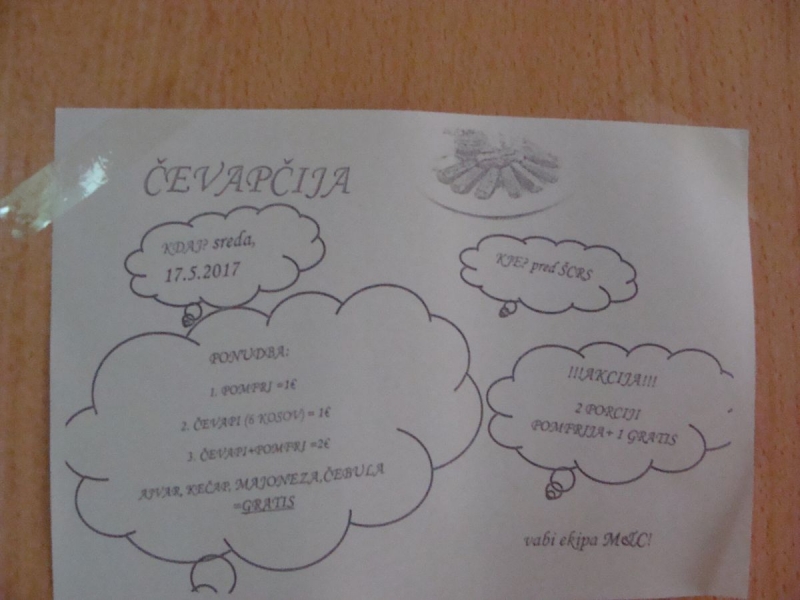 ČEVAPČIJA
KDAJ? sreda,
17.5.2017
KJE? pred ŠCRS
PONUDBA:
1. POMFRI =1€
2. ČEVAPI (6 KOSOV) = 1€
3. ČEVAPI+POMFRI =2€
AJVAR, KEČAP, MAJONEZA,ČEBULA
=GRATIS
!!!AKCIJA!!!
2 PORCIJI
POMFRIJA+ 1 GRATIS
vabi ekipa M&C!